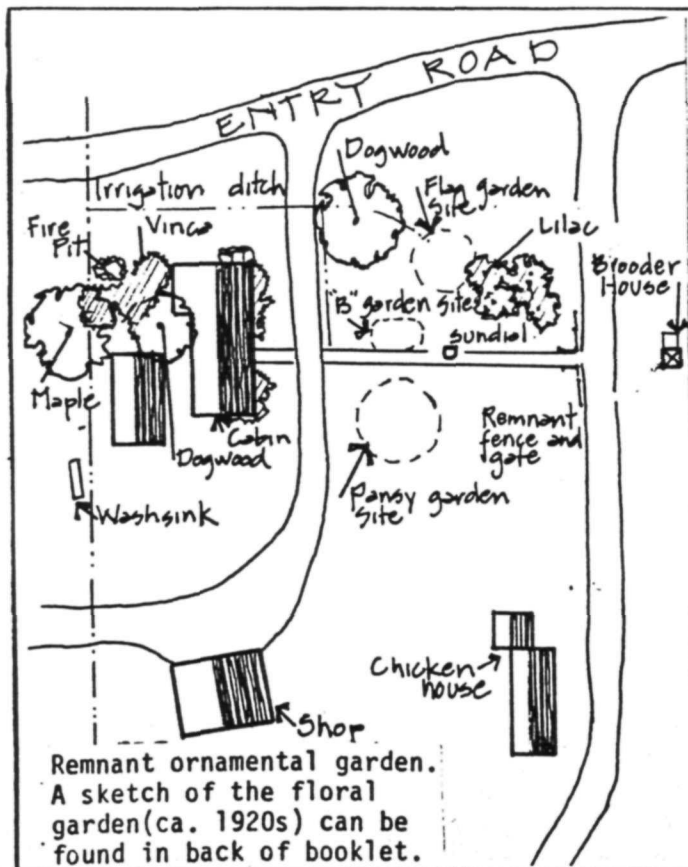 ENTRY ROAD
Dogwood
Irrigation ditch
Flag garden
Site
Fire
Pit
Vinca
Lilac
Brooder
House
"B" garden Site
Sundial
Maple
Cabin
Dogwood
Remnant
fence and
gate
Pansy garden
Site
Washsink
Chicken
house
Shop
Remnant ornamental garden.
A sketch of the floral
garden(ca. 1920s) can be
found in back of booklet.